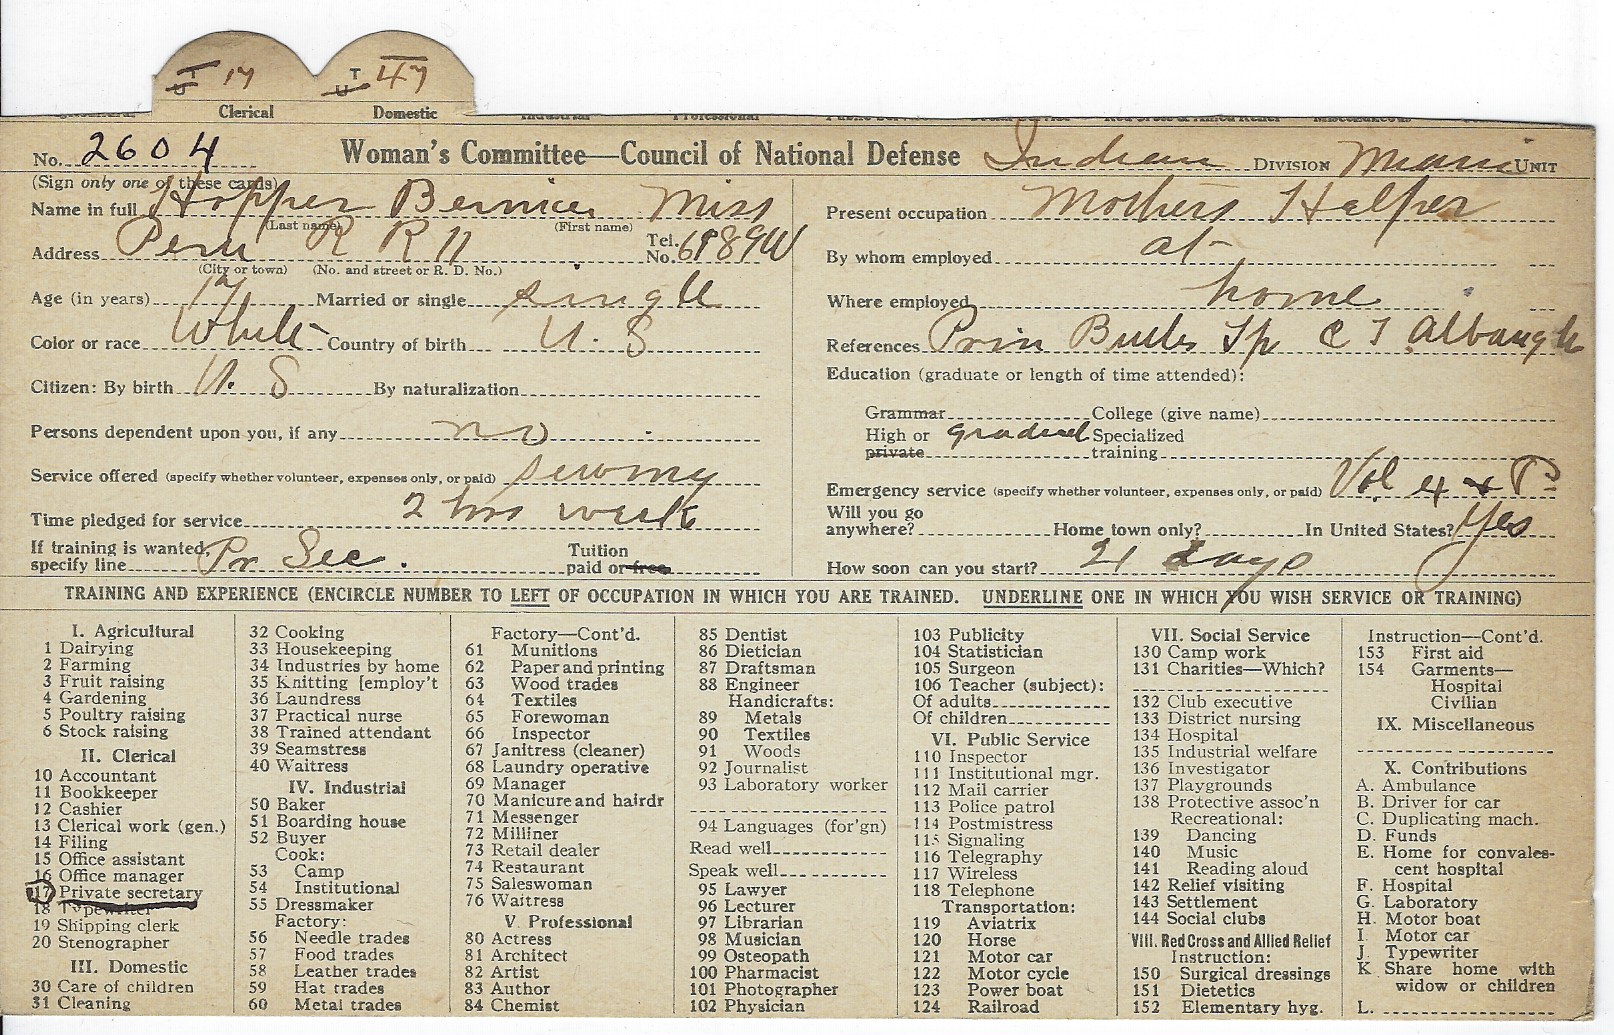 T U 17 T U 47
Clerical Domestic
No. 2604 Woman's Committee—Council of National Defense Indiana DIVISION Miami UNIT
(Sign only one of these cards)
Name in full Hopper Bernice Miss
(Last name) (First name)
Address Peru R R 11 Tel. No. 6989W
(City or town) (No. and street or R. D. No.)
Age (in years) 17 Married or single single
Color or race White Country of birth U. S
Citizen: By birth U. S By naturalization
Persons dependent upon you, if any no
Service offered (specify whether volunteer, expenses only, or paid) sewing
Time pledged for service 2 hrs week
If training is wanted, specify line Pr Sec. Tuition paid or free
Present occupation Mothers Helper
By whom employed at
Where employed home
References Prin Butler Tp C T Albaugh
Education (graduate or length of time attended):
Grammar College (give name)
High or private graduat Specialized training
Emergency service (specify whether volunteer, expenses only, or paid) Vol
Will you go anywhere? Home town only? In United States? Yes
How soon can you start? 21 days
TRAINING AND EXPERIENCE (ENCIRCLE NUMBER TO LEFT OF OCCUPATION IN WHICH YOU ARE TRAINED. UNDERLINE ONE IN WHICH YOU WISH SERVICE OR TRAINING)
I. Agricultural
1 Dairying
2 Farming
3 Fruit raising
4 Gardening
5 Poultry raising
6 Stock raising
II. Clerical
10 Accountant
11 Bookkeeper
12 Cashier
13 Clerical work (gen.)
14 Filing
15 Office assistant
16 Office manager
17 Private secretary
18 Typewriter
19 Shipping clerk
20 Stenographer
III. Domestic
30 Care of children
31 Cleaning
32 Cooking
33 Housekeeping
34 Industries by home
35 Knitting [employ't
36 Laundress
37 Practical nurse
38 Trained attendant
39 Seamstress
40 Waitress
IV. Industrial
50 Baker
51 Boarding house
52 Buyer
Cook:
53 Camp
54 Institutional
55 Dressmaker
Factory:
56 Needle trades
57 Food trades
58 Leather trades
59 Hat trades
60 Metal trades
Factory—Cont'd.
61 Munitions
62 Paper and printing
63 Wood trades
64 Textiles
65 Forewoman
66 Inspector
67 Janitress (cleaner)
68 Laundry operative
69 Manager
70 Manicure and hairdr
71 Messenger
72 Milliner
73 Retail dealer
74 Restaurant
75 Saleswoman
76 Waitress
V. Professional
80 Actress
81 Architect
82 Artist
83 Author
84 Chemist
85 Dentist
86 Dietician
87 Draftsman
88 Engineer
Handicrafts:
89 Metals
90 Textiles
91 Woods
92 Journalist
93 Laboratory worker
94 Languages (for'gn)
Read well
Speak well
95 Lawyer
96 Lecturer
97 Librarian
98 Musician
99 Osteopath
100 Pharmacist
101 Photographer
102 Physician
103 Publicity
104 Statistician
105 Surgeon
106 Teacher (subject):
Of adults
Of children
VI. Public Service
110 Inspector
111 Institutional mgr.
112 Mail carrier
113 Police patrol
114 Postmistress
115 Signaling
116 Telegraphy
117 Wireless
118 Telephone
Transportation:
119 Aviatrix
120 Horse
121 Motor car
122 Motor cycle
123 Power boat
124 Railroad
VII. Social Service
130 Camp work
131 Charities—Which?
132 Club executive
133 District nursing
134 Hospital
135 Industrial welfare
136 Investigator
137 Playgrounds
138 Protective assoc'n
Recreational:
139 Dancing
140 Music
141 Reading aloud
142 Relief visiting
143 Settlement
144 Social clubs
VIII. Red Cross and Allied Relief
Instruction:
150 Surgical dressings
151 Dietetics
152 Elementary hyg.
Instruction—Cont'd.
153 First aid
154 Garments—
Hospital
Civilian
IX. Miscellaneous
X. Contributions
A. Ambulance
B. Driver for car
C. Duplicating mach.
D. Funds
E. Home for convales-
cent hospital
F. Hospital
G. Laboratory
H. Motor boat
I. Motor car
J. Typewriter
K Share home with
widow or children
L.